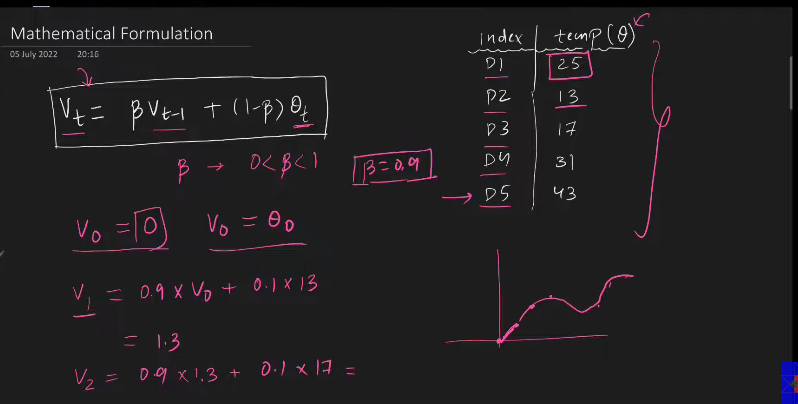 Mathematical Formulation
05 July 2022 20:16
V_t = βV_{t-1} + (1-β)θ_t
β → 0<β<1 β=0.9
V_0 = 0 V_0 = θ_0
V_1 = 0.9 × V_0 + 0.1 × 13
= 1.3
V_2 = 0.9 × 1.3 + 0.1 × 17 =
index temp(θ)
D1 25
D2 13
D3 17
D4 31
D5 43